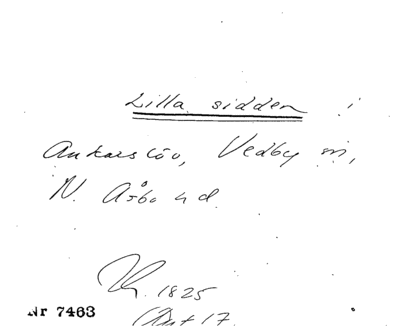 Lilla sidden i
Ankarslöv, Vedby sn,
N. Åsbo hd.
1825
17
Nr 7463